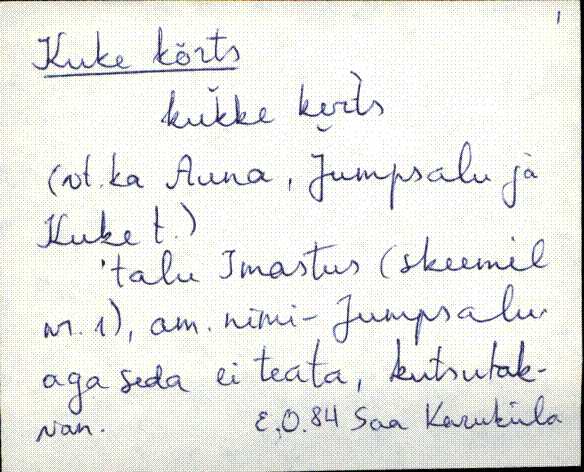 1
Kuke kõrts
kŭkke kə̬rt̀s
(vt. ka Auna, Jumpsalu ja
Kuke t.)
'talu Imastus (skeemil
nr. 1), am. nimi - Jumpsalu.
aga seda ei teata, kutsutak-
E.O. 84 Saa Karuküla